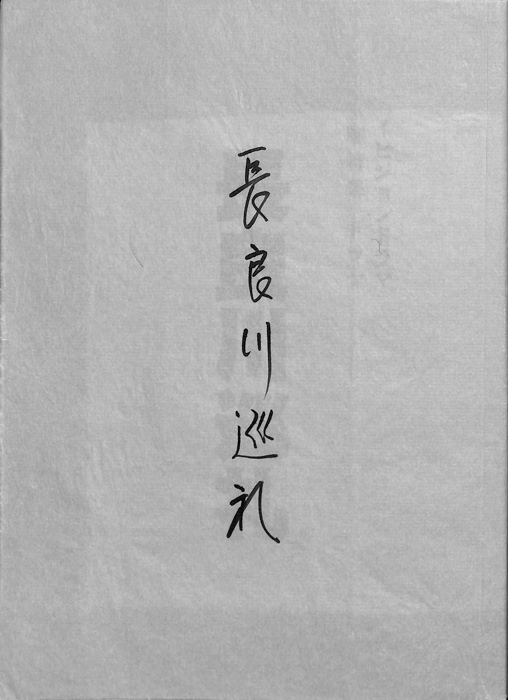 長良川巡礼